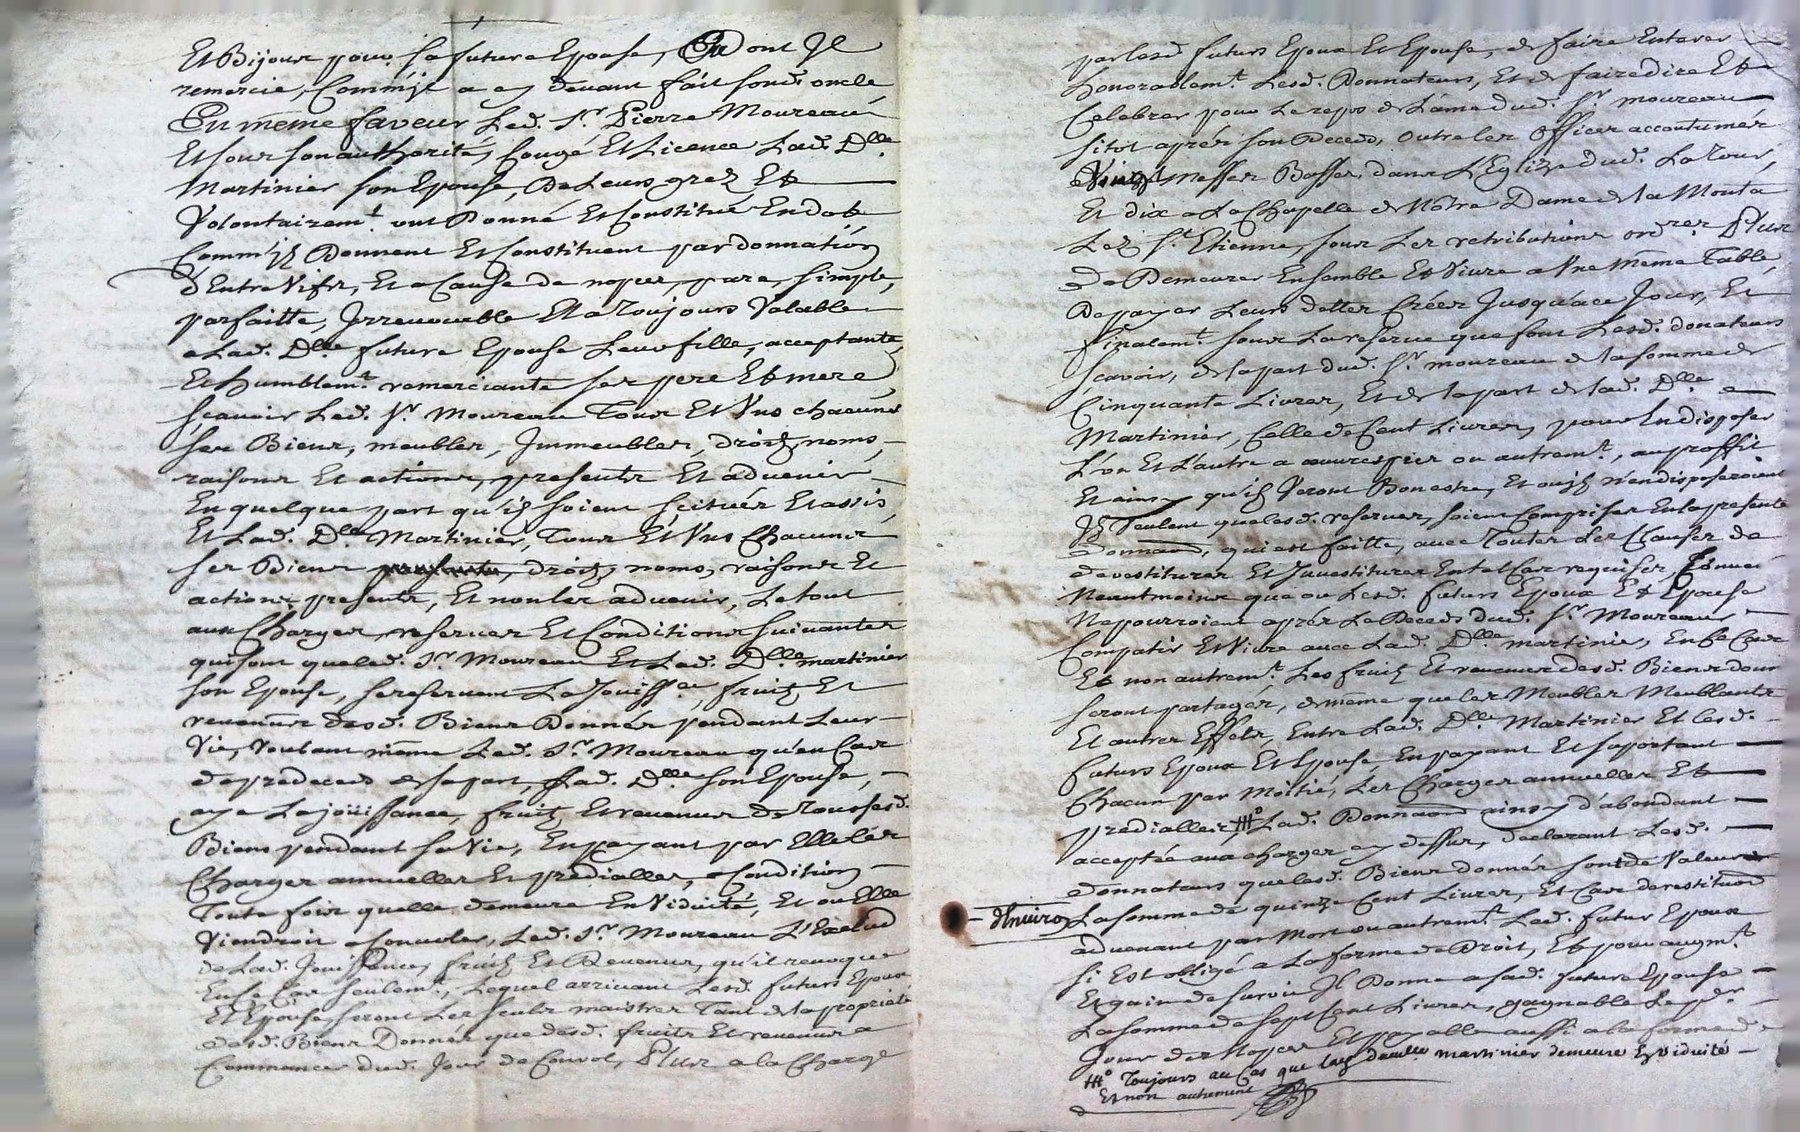 Et Bijoux pour sa future Epouse, Dont Il
remercie, Comm'Il a cy devant fait sond. oncle
En meme faveur Led. Sr. Pierre Moureau
Et sour son authorité, Congé Et Licence Lad. Dlle.
Martinier son Epouse, De Leurs grez Et
Volontairemt. ont Donné Et Constitué En dot
Comm'Ilz Donnent Et Constituent par donnation
D'Entre Vifs, Et a Cause de nopces, pure, simple,
parfaitte, Irrevocable Et a Toujours Valable
a Lad. Dlle. future Epouse Leur fille, acceptante
Et humblemt. remerciante ses pere Et mere
sçavoir Led. Sr. Moureau Tous Et Uns chacuns
ses Biens, meubles, Immeubles, droitz, noms,
raisons Et actions, presents Et advenir
En quelque part qu'ilz soient scitués Et assis,
Et Lad. Dlle. Martinier, Tous Et Uns Chacuns
ses Biens droitz, noms, raisons Et
actions presents, Et non les advenir, Le tout
aux Charges, reserves Et Conditions suivantes
qui sont que led. Sr. Moureau Et Lad. Dlle. martinier
son Epouse, se reservent La Jouissce, fruitz Et
revenus desd. Biens Donnés pendant Leur
Vie, Voulant même Led. Sr. Moureau qu'en Cas
de predeceds de sa part, Lad. Dlle. son Epouse,
aye La joüissance, fruitz, Et revenus De Tous sesd.
Biens pendant sa Vie, En payant par Elle les
Charges annuelles Et predialles, a Condition
Toute fois quelle demeure En Viduité, Et ou Elle
Viendroit a Convoler, Led. Sr. Moureau L'Exclud
de Lad. Jouissance, fruitz Et Revenus, qu'il revoque
En Ce Cas seulemt., Lequel arrivant Lesd. futurs Epoux
Et Epouse seront Les seuls maistres Tant de la proprieté
desd. Biens Donnés que desd. fruits Et revenus a
Commencer dud. Jour de Convol, Plus a la Charge
par lesd. futurs Epoux Et Epouse, de faire Enterer
honorablemt. Lesd. Donnateurs, Et de faire dire Et
Celebrer pour Le repos de L'ame dud. Sr. moureau
sitot aprés son Deceds, outre les offices accoutumés
Vingt Messes Basses, dans L'Eglize dud. La Tour,
Et dix a La Chapelle de Nôtre Dame de la Monta
Lez St. Etienne, sous Les retributions ordres. Plus
De Demeurer Ensemble Et Vivre a Une même Table,
De payer Leurs dettes Créés Jusqu'à ce Jour, Et
finalemt. sous La reserve que font Lesd. donateurs
sçavoir, de la part dud. Sr. moureau de la somme de
Cinquante Livres, Et de la part de lad. Dlle.
Martinier, Celle de Cent Livres, pour En disposer
L'on Et L'autre a ou autremt., au proffit
Et ainsy qu'ilz Veront Bon estre, Et ou ilz n'en disposeroient
Ilz Veulent que lesd. reserves, soient Comprises En la presente
donnaon, qui est faitte, avec Toutes Les Clauses de
devestitures Et Investitures En tel Cas requises, Convenu
Neantmoins que ou Lesd. futurs Epoux Et Epouse
Ne pourroient aprés Le Deceds dud. Sr. Moureau
Compatir Et Vivre avec Lad. Dlle. martinier, En Ce Cas
Et non autremt. Les fruitz Et revenus desd. Biens donn
seront partagés, de même que les Meubles Meublants
Et autres Effets, Entre Lad. Dlle. Martinier Et lesd.
futurs Epoux Et Epouse En payant Et suportant
Chacun par Moitié, Les Charges annuelles Et
predialles, Lad. Donnaon ainsy d'abondant
acceptée aux charges cy dessus, declarant Lesd.
donnateurs que lesd. Biens donnés sont de Valeur
d'Enviro La somme de quinze Cent Livres, Et Cas de restituon
advenant par Mort ou autremt. Led. futur Epoux
si Est obligé a La forme de Droit, Et pour augmt.
Et gain de survie Il Donne a sad. future Epouse
La somme de sept Cent Livres, gagnable Le per.
Jour des Nopces Et payable aussi a la forme de
Toujours au Cas que lad. dlle martinier demeure En viduité
Et non autrement